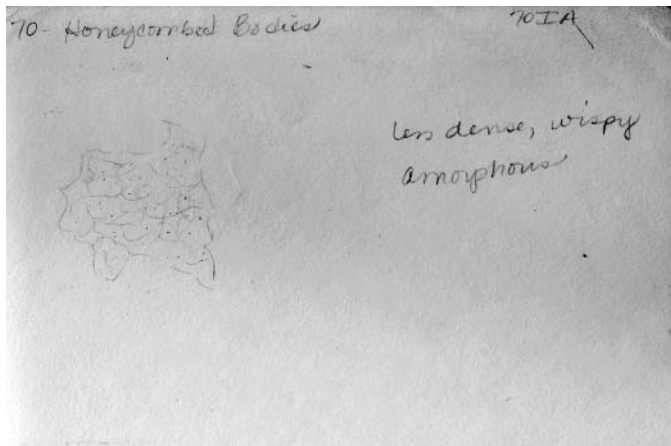 70 - Honeycombed Bodies
70IA
less dense, wispy
amorphous